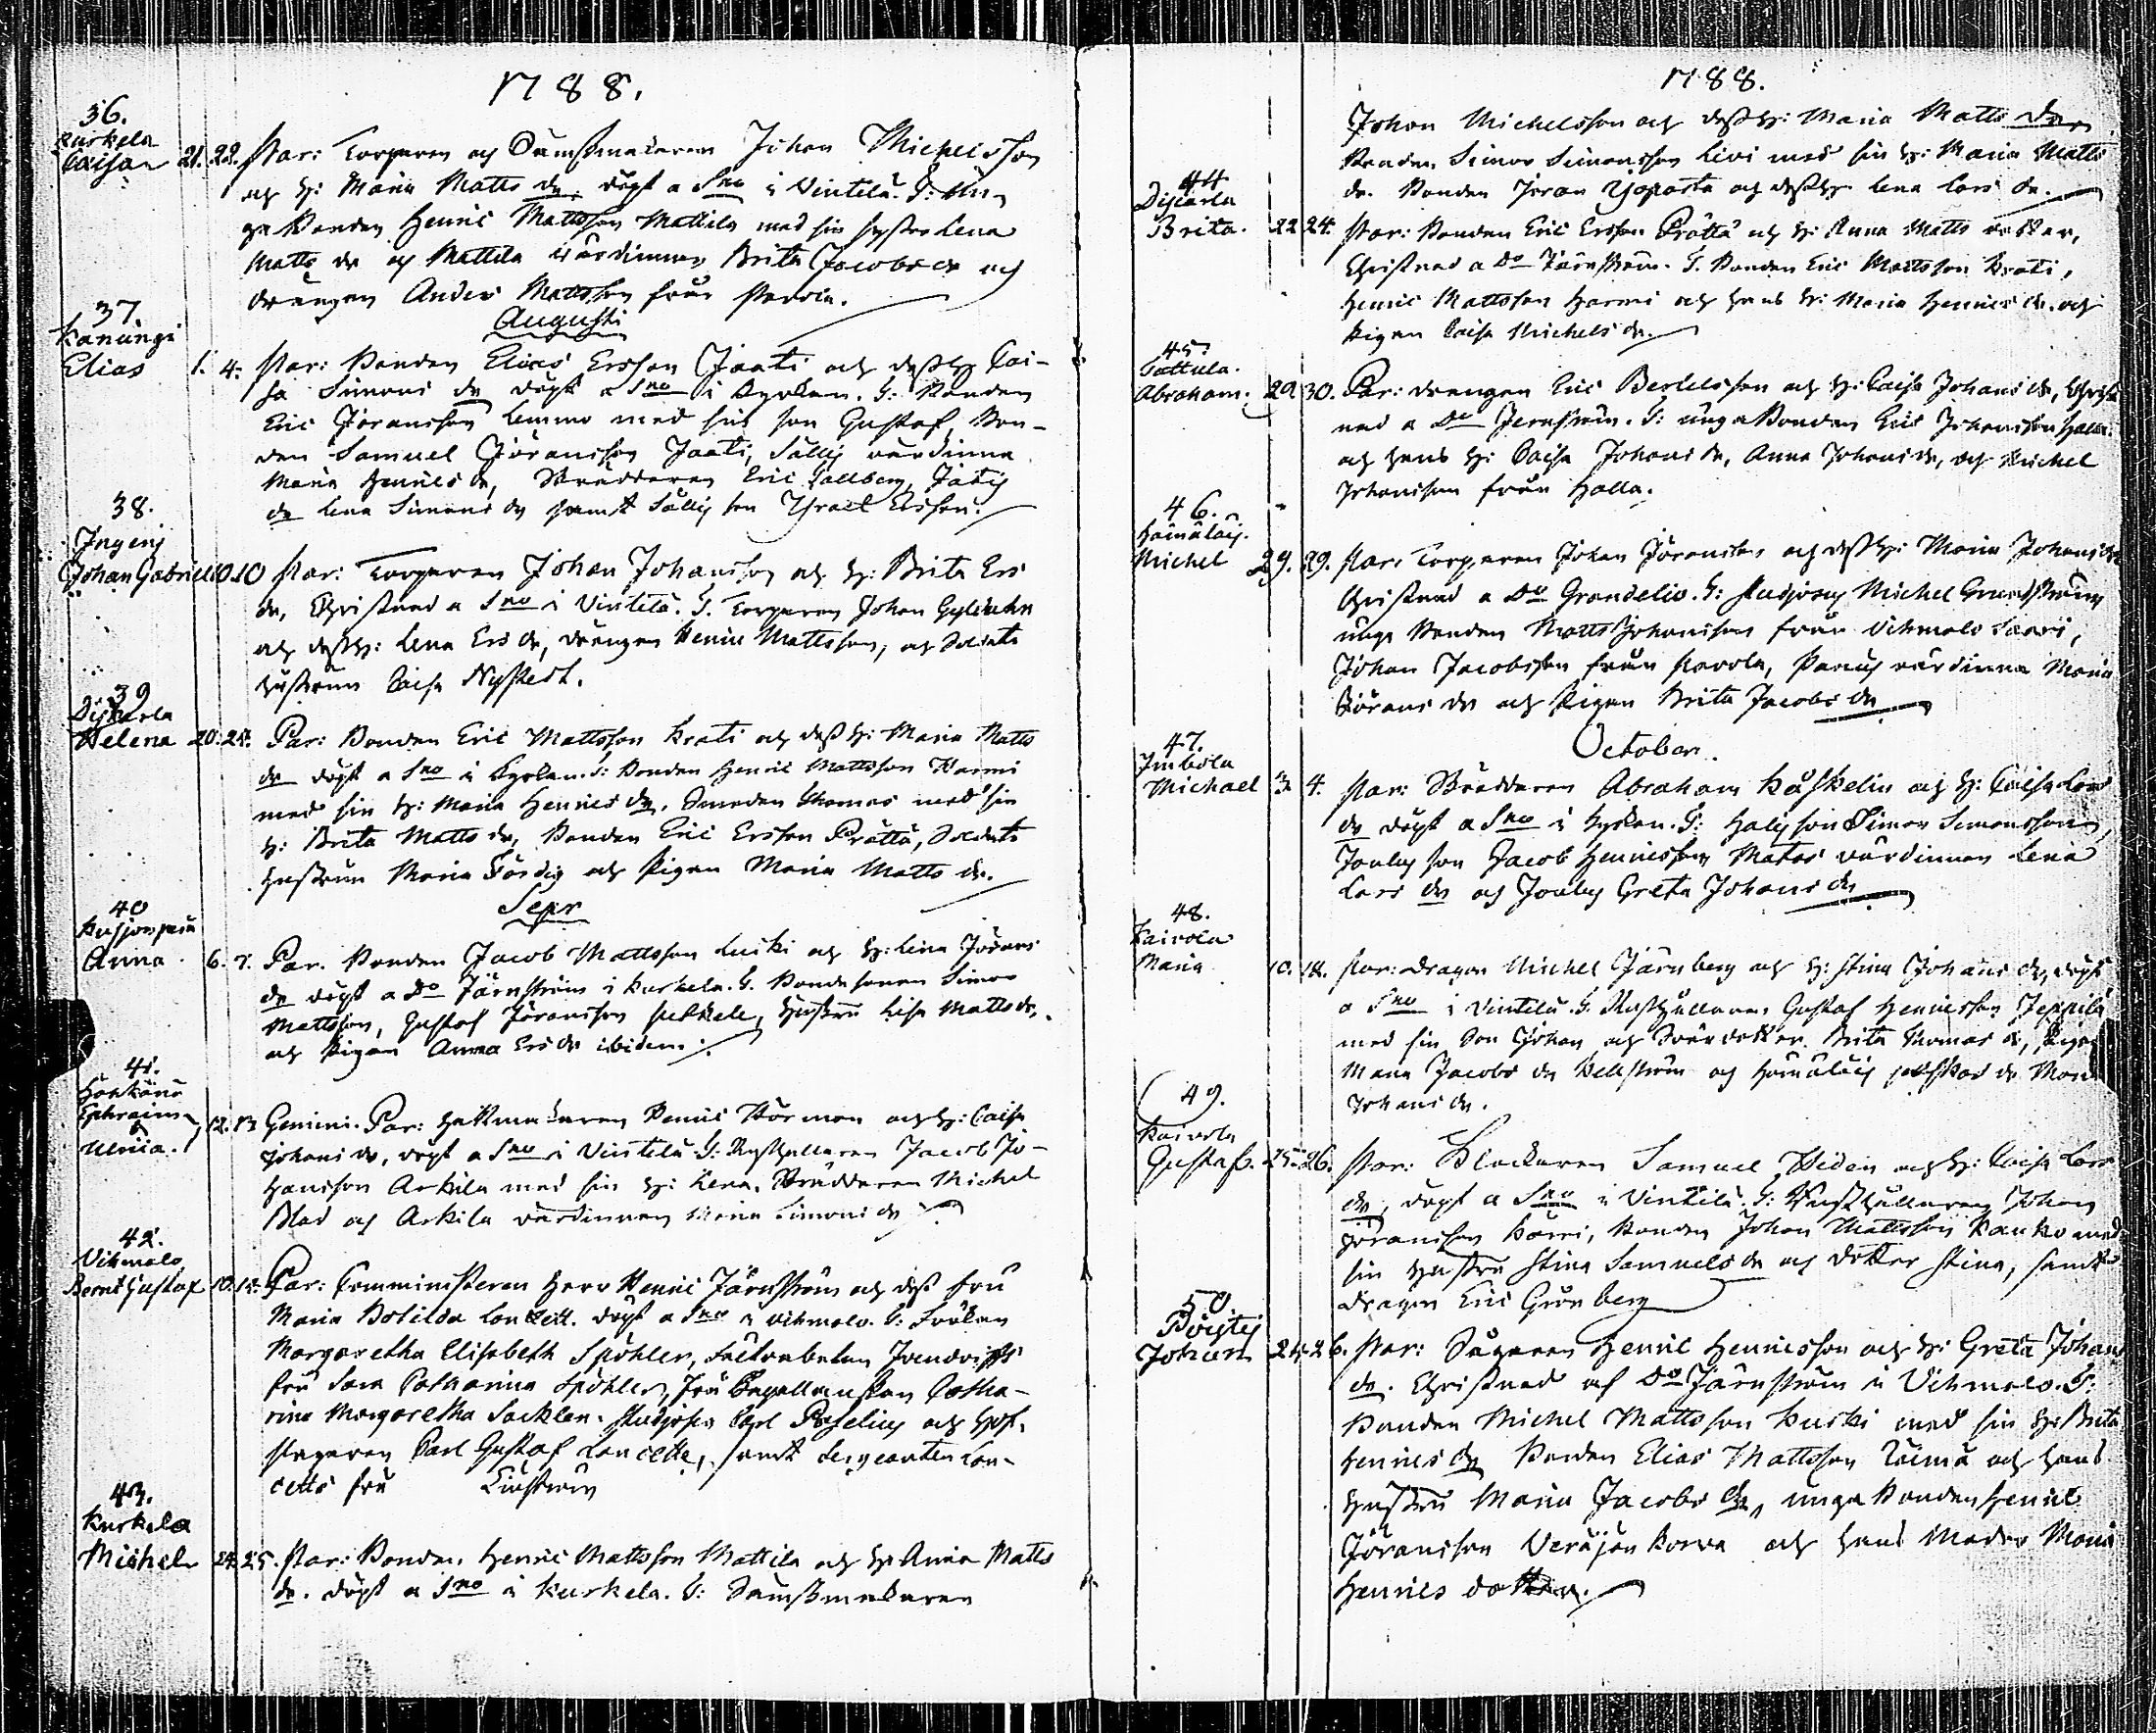 1788.
36.
Kurkela
Caisa 21. 22. Par: Torparen och Damsmakaren Johan Michelsson
och H: Maria Matts dr. döpt a Sno i Vintelä. T: Un-
ga Bonden Henric Mattsson Mattila med sin syster Lena
Matts dr och Mattila wärdinnan Brita Jacobs dr och
drängen Anders Mattsson från
Augusti
37
Kanungi
Elias 1. 4. Par: Bonden Elias Ersson Jaati och dess H: Cai-
sa Simons dr döpt a Sno i Kyrkan. T: Bonden
Eric Jöransson Lemmo med sin son Gustaf, Bon-
den Samuel Jöransson Jaati, Sällij värdinna
Maria Henrics dr, Skräddaren Eric Hallberg, Jatij
dr Lena Simons dr samt Sällij son Israel Ersson.
38.
Ingeris
Johan Gabriel 10 10 Par: Torparen Johan Johansson och H: Brita Ers
dr, Christnad a Sno i Vintelä. T. Torparen Johan
och dess H: Lena Ers dr, drängen Henric Mattsson, och Soldats
hustrun Caisa Nystedt.
39
Diskarla
Helena 20. 24. Par: Bonden Eric Mattsson Krati och dess H: Maria Matts
dr döpt a Sno i Kyrkan. T: Bonden Henric Mattsson Harmi
med sin H: Maria Henrics dr. Smeden Thomas med sin
H: Brita Matts dr, Bonden Eric Ersson Prättä, Soldats
hustrun Maria Färdig och Pigan Maria Matts dr.
Sepr
40
Kusjonpää
Anna 6. 7. Par. Bonden Jacob Mattsson Luski och H: Lena Jörans
dr döpt a Do Järnström i Kurkela. T. Bondesonen Simon
Mattsson, Gustaf Jöransson, hustru Lisa Matts dr,
och Pigan Anna Ers dr ibidem.
41.
Honkänä
Ephraim
&
Ulrica. 12. 13 Gemini. Par: Hattmakaren Henric Norman och H: Caisa
Johans dr, döpt a Sno i Vintelä. T: Rusthållaren Jacob Jo-
hansson Arkila med sin H: Lena. Skräddaren Michel
Blad och Arkila värdinnan Maria Simons dr
42.
Vihmalo
Bernt Gustaf 10. 15. Par: Comministeren Herr Henric Järnström och dess fru
Maria Botilda Loncett. döpt a Sno i Vihmalo. T: Fröken
Margaretha Elisabeth Spöhler,
fru Sara Catharina Spöhler, fru Capellanskan Catha-
rina Margaretha Sacklen. Studiosus Carl Paselius och
Carl Gustaf Loncette, samt Sergeanten Lon-
cetts fru
43.
Kurkela
Michel 24. 25. Par: Bonden Henric Mattsson Mattila och H: Anna Matts
dr. döpt a Sno i Kurkela. T: Damsmakaren
1788.
Johan Michelsson och dess H: Maria Matts dr,
Bonden Simon Simonsson Livi med sin H: Maria Matts
dr. Bonden Jöran Yjoparta och dess H: Lena Lars dr.
44
Diskarla
Brita. 22 24. Par: Bonden Eric Ersson Prättä och H: Anna Matts dotter,
Christnad a Do Järnström. T. Bonden Eric Mattsson Krati,
Henric Mattsson Harmi och hans H: Maria Henrics dr. och
Pigan Caisa Michels dr.
45
Tattula.
Abraham. 29. 30. Par: drängen Eric Bertelsson och H: Caisa Johans dr, Christ-
nad a Do Jernström. T: unga Bonden Eric Johansson Halla
och hans H: Caisa Johans dr, Anna Johans dr, och Michel
Johansson från Halla.
46.
Hämäläis.
Michel 29. 29. Par: Torparen Johan Jöransson och dess H: Maria Johans dr
Christnad a Do Grandelio. T: Studiosus Michel Grundström
unga Bonden Matts Johansson från Vihmalo Saari,
Johan Jacobsson från Pavola, värdinna Maria
Jörans dr och Pigan Brita Jacobs dr
October.
47.
Imbola
Michael 3 4. Par: Skräddaren Abraham Kåskelin och H: Caisa Lars
dr döpt a Sno i Kyrkan. T: Halij son Simon Simonsson,
Jouly son Jacob Henricsson, Matas värdinnan Lena
Lars dr och Jouly Greta Johans dr
48.
Kaivola
Maria 10. 12. Par: Dragon Michel Järnberg och H: Stina Johans dr, döpt
a Sno i Vintelä. T. Rusthållaren Gustaf Henricsson Jeppilä
med sin Son Johan och Svärdotter Brita Thomas dr, Pigan
Maria Jacobs dr Hellström och Hämäläis dr Maria
Johans dr.
49.
Kaivola
Gustaf. 25. 26. Par: Klockaren Samuel Widen och H: Caisa Lars
dr, döpt a Sno i Vintelä. T: Rusthållaren Johan
Jöransson Kärri, Bonden Johan Mattsson Kauko med
sin Hustru Stina Samuels dr och dotter Stina, samt
dragon Eric Grönberg
50
Pöijtij
Johan 24. 26. Par: Sågaren Henric Henricsson och H: Greta Johans
dr. Christnad af Do Järnström i Vihmalo. T:
Bonden Michel Mattsson Kuski med sin H: Brita
Henrics dr Bonden Elias Mattsson Räimä och hans
Hustru Maria Jacobs dr, unga Bonden Henric
Jöransson Veräjän Korva och hans Moder Maria
Henrics dotter.